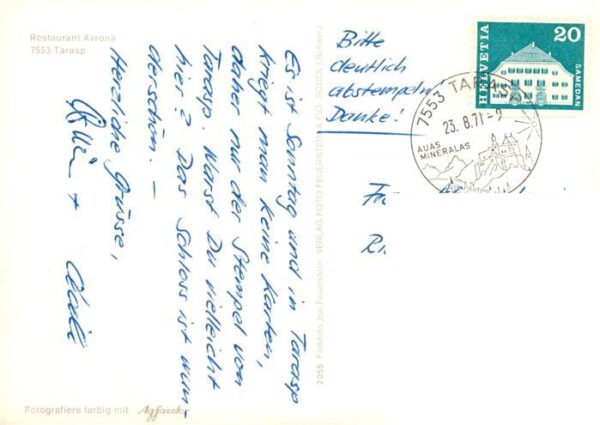 Restaurant Avrona
7553 Tarasp
Es ist Sonntag und in Tarasp
kriegt man keine Karten,
daher nur der Stempel von
Tarasp. Warst Du vielleicht
hier? Das Schloss ist wun-
derschön. –
Herzliche Grüsse,
+ Cécile
Fotografiere farbig mit Agfacolor
2055 Farbfoto Jon Feuerstein VERLAG FOTO FEUERSTEIN
Bitte
deutlich
abstempeln!
Danke!
HELVETIA
20
SAMEDAN
7553 TARASP
23.8.71-
AUAS
MINERALAS